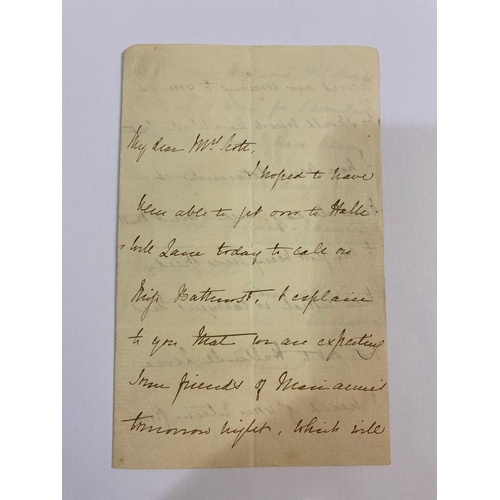 My dear Mrs Scott,
I hoped to have
been able to get over to Halli-
will Lane today to call on
Miss Bathurst, & explain
to you that we are expecting
some friends of Marianne's
tomorrow night, which will